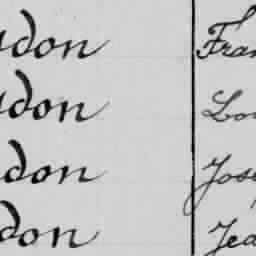 don Fran
don Lou
don Jose
don Jea